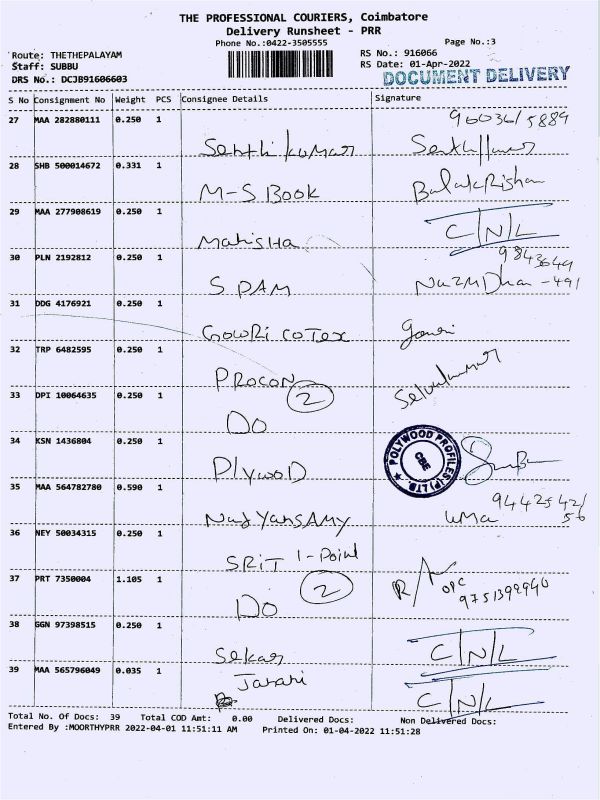 THE PROFESSIONAL COURIERS, Coimbatore
Delivery Runsheet - PRR
Phone No.:0422-3505555 Page No.:3
Route: THETHEPALAYAM RS No.: 916066
Staff: SUBBU RS Date: 01-Apr-2022
DRS No.: DCJB91606603 DOCUMENT DELIVERY
S No Consignment No Weight PCS Consignee Details Signature
27 MAA 282880111 0.250 1 96036/5889
Senthi kumar
28 SHB 500014672 0.331 1
M-S BOOK Balakrishan
29 MAA 277908619 0.250 1 C/N/L
Mahisha
30 PLN 2192812 0.250 1 9843649
S PAM -491
31 DDG 4176921 0.250 1
GOWRi COTEX gowri
32 TRP 6482595 0.250 1
PROCON 2 Selvakumar
33 DPI 10064635 0.250 1
DO
34 KSN 1436804 0.250 1 POLYWOOD PROFILES (P) LTD. CBE
PlywooD
35 MAA 564782780 0.590 1 9442542/
56
uma
36 NEY 50034315 0.250 1
SRiT 1-Point
37 PRT 7350004 1.105 1 2
DO OPC
38 GGN 97398515 0.250 1 C/N/L
Sekar
39 MAA 565796049 0.035 1 C/N/L
Total No. Of Docs: 39 Total COD Amt: 0.00 Delivered Docs: Non Delivered Docs:
Entered By :MOORTHYPRR 2022-04-01 11:51:11 AM Printed On: 01-04-2022 11:51:28